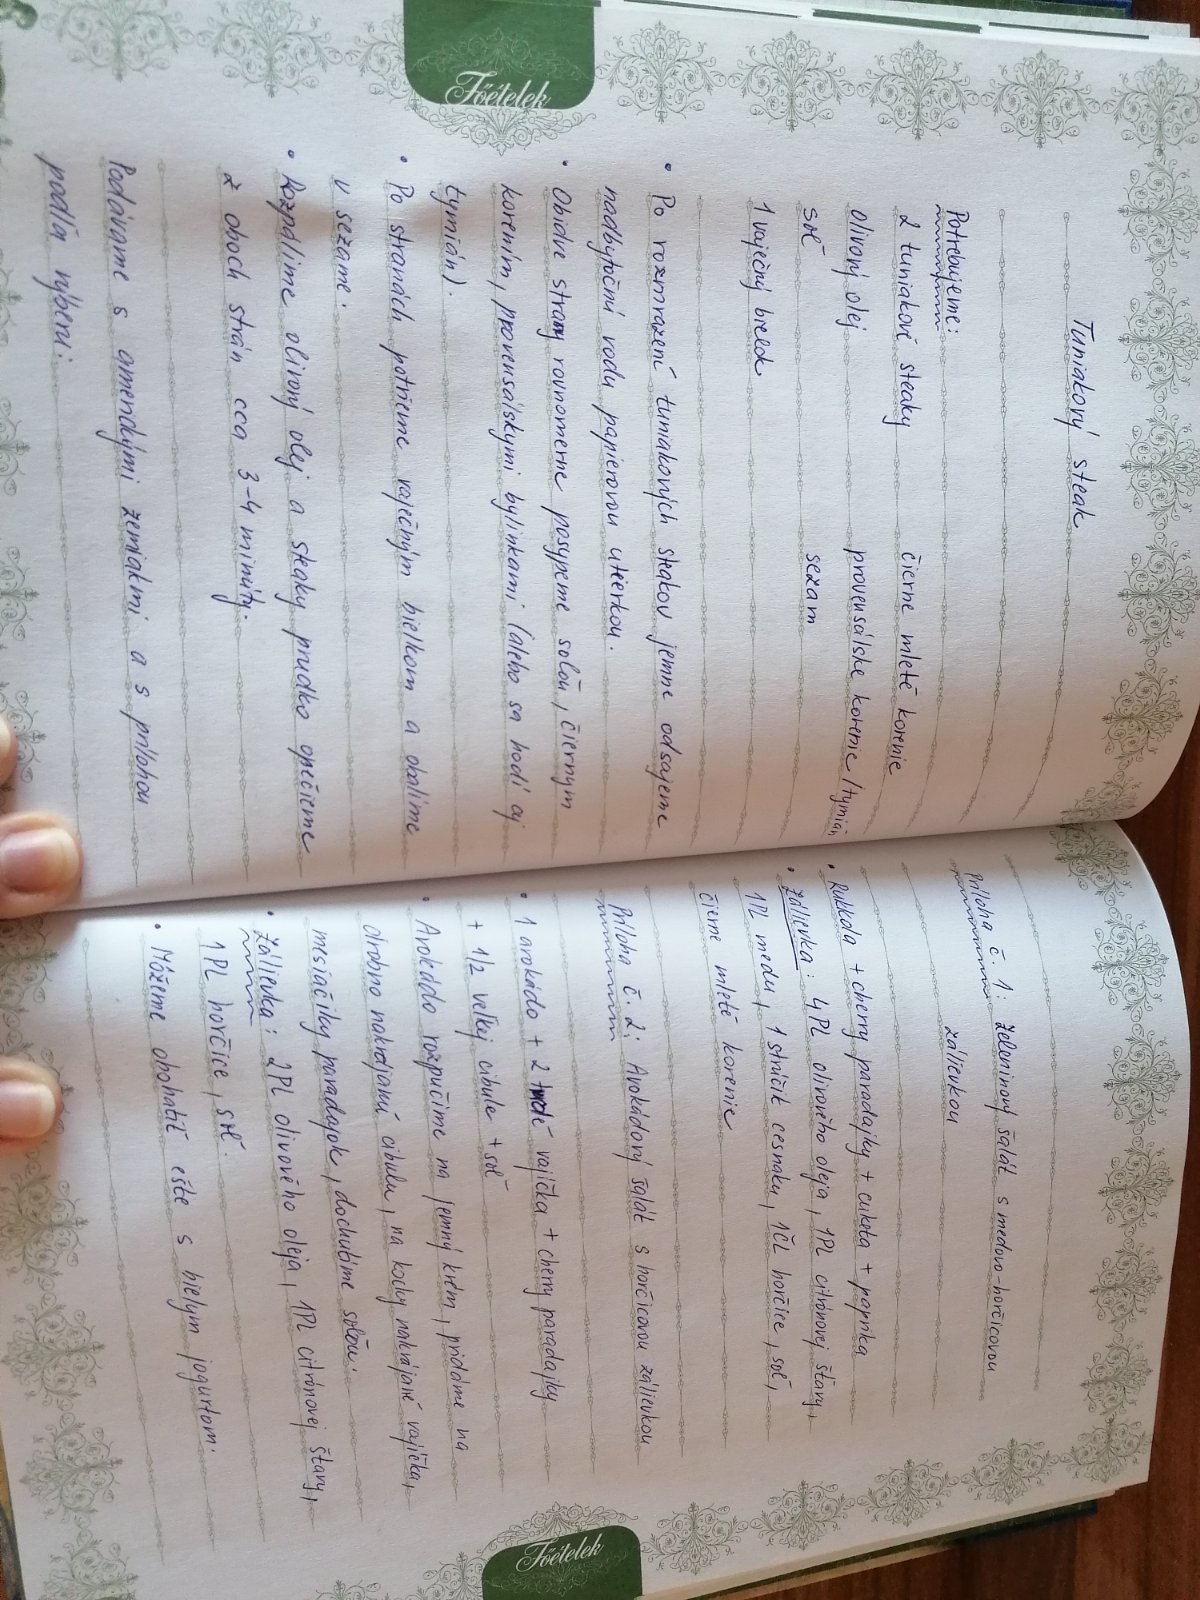 Főételek
Tuniakový steak
Potrebujeme:
2 tuniakové steaky čierne mleté korenie
olivový olej provensálske korenie/tymián
soľ sezam
1 vaječný bielok
• Po rozmrazení tuniakových steakov jemne odsajeme
nadbytočnú vodu papierovou utierkou.
• Obidve strany rovnomerne posypeme soľou, čiernym
korením, provensálskymi bylinkami (alebo sa hodí aj
tymián).
• Po stranách potrieme vaječným bielkom a obalíme
v sezame.
• Rozpálime olivový olej a steaky prudko opečieme
z oboch strán cca 3-4 minúty.
Podávame s americkými zemiakmi a s prílohou
podľa výberu:
Príloha č. 1: Zeleninový šalát s medovo-horčicovou
zálievkou
• Rukkola + cherry paradajky + cuketa + paprika
• Zálievka: 4PL olivového oleja, 1PL citrónovej šťavy,
1PL medu, 1 strúčik cesnaku, 1ČL horčice, soľ,
čierne mleté korenie
Príloha č. 2: Avokádový šalát s horčicovou zálievkou
• 1 avokádo + 2 vajíčka + cherry paradajky
+ 1/2 veľkej cibule + soľ
• Avokádo rozpučíme na jemný krém, pridáme na
drobno nakrájanú cibuľu, na kocky nakrájané vajíčka,
mesiačiky paradajok, dochutíme soľou.
• Zálievka: 2PL olivového oleja, 1PL citrónovej šťavy,
1PL horčice, soľ.
• Môžeme obohatiť ešte s bielym jogurtom.
Főételek